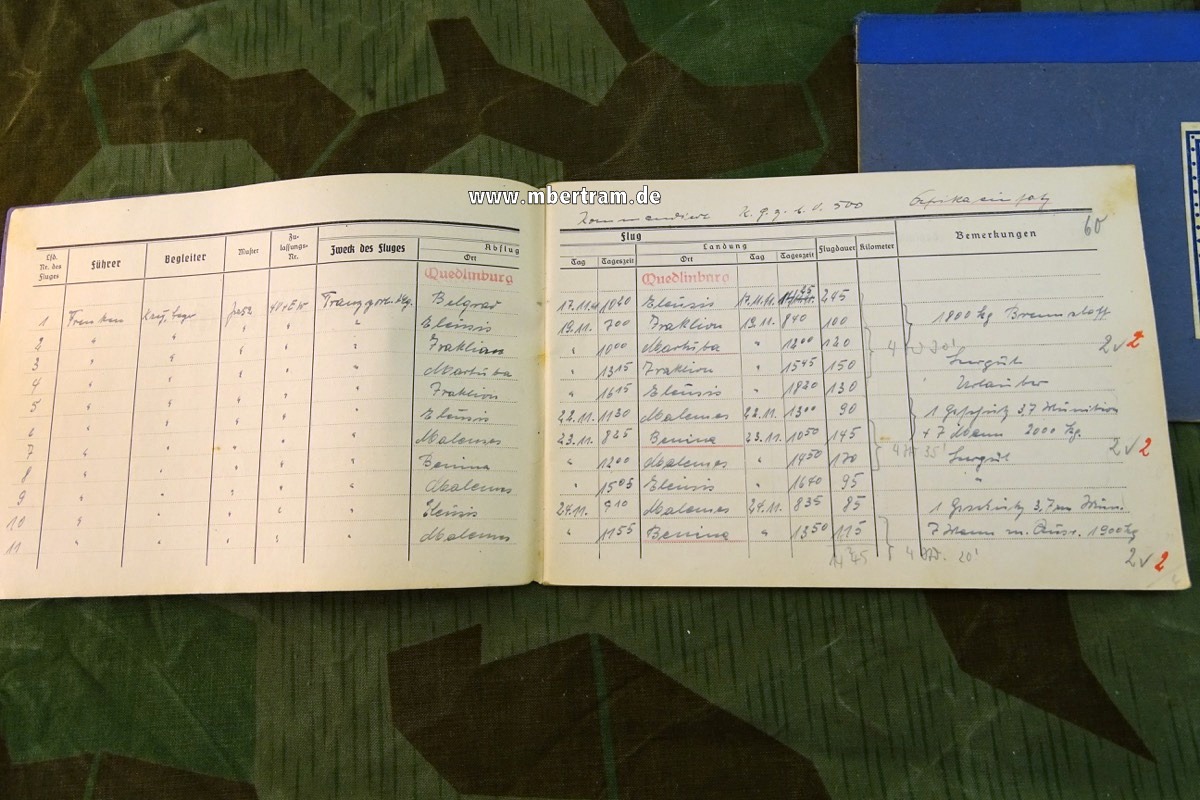 www.mbertram.de
K.G.z.b.V. 500
60
Flug
Abflug Landung
Lfd. Nr. des Fluges Führer Begleiter Muster Zulassungs-Nr. Zweck des Fluges Ort Tag Tageszeit Ort Tag Tageszeit Flugdauer Kilometer Bemerkungen
Quedlinburg Quedlinburg
1 Ju52 Belgrad 17.11. 1020 Eleusis 17.11. 245
2 " " " " " Eleusis 19.11. 700 Iraklion 19.11. 840 100 1800 kg Brennstoff
3 " " " " " Iraklion " 1000 Martuba " 1200 120 2 √ 2
4 " " " " " Martuba " 1315 Iraklion " 1545 150
5 " " " " " Iraklion " 1615 Eleusis " 1820 130 " Urlauber
6 " " " " " Eleusis 22.11. 1130 Malemes 22.11. 1300 90 1 Geschütz 3,7 Munition
7 " " " " " Malemes 23.11. 825 Benina 23.11. 1050 145 + 7 Mann 2000 kg.
8 " " " " " Benina " 1200 Malemes " 1450 170 2 √ 2
9 " " " " " Malemes " 1505 Eleusis " 1640 95 "
10 " " " " " Eleusis 24.11. 710 Malemes 24.11. 835 85 1 Geschütz 3,7 cm Mun.
11 " " " " " Malemes " 1155 Benina " 1350 115 7 Mann m. Ausr. 1900 kg
2 √ 2